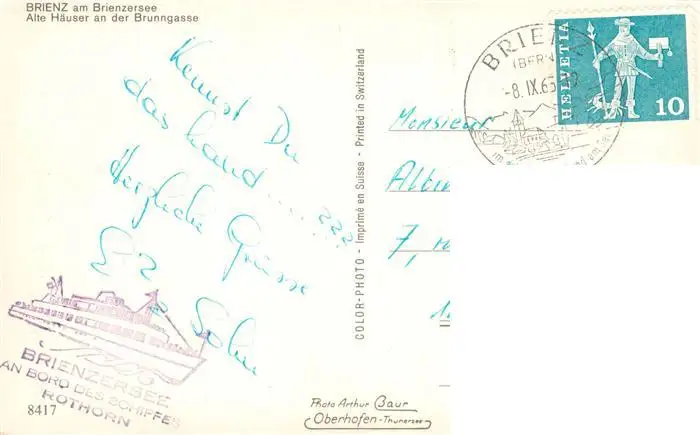 BRIENZ am Brienzersee
Alte Häuser an der Brunngasse
Kennst Du
das Land.....???
Herzliche Grüsse
Sohn
BRIENZERSEE
AN BORD DES SCHIFFES
ROTHORN
8417
COLOR-PHOTO - Imprimé en Suisse - Printed in Switzerland
Photo Arthur Baur
Oberhofen-Thunersee
BRIENZ
(BERN)
-8.IX.65
HELVETIA
10
Monsieur
7,